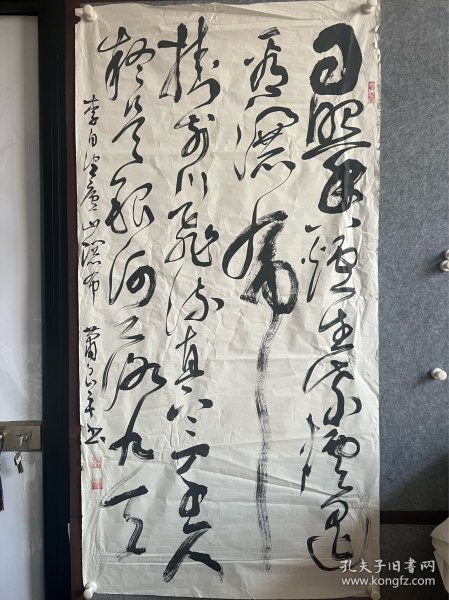 日照香爐生紫煙遥
看瀑布
掛前川飛流直下三千尺
疑是銀河落九天
李白望廬山瀑布 蕭 年书
孔夫子旧书网
www.kongfz.com